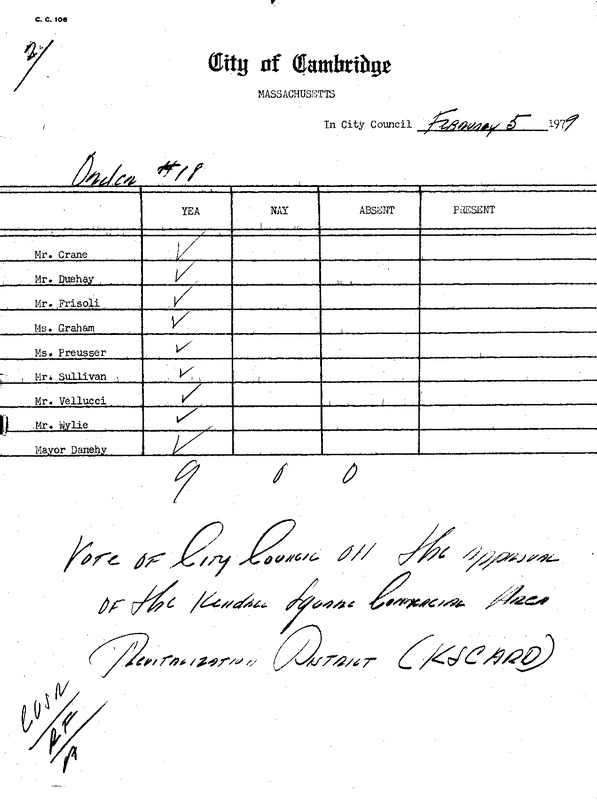 C. C. 106
2/
City of Cambridge
MASSACHUSETTS
In City Council February 5 1979
Order #18
YEA NAY ABSENT PRESENT
Mr. Crane ✓
Mr. Duehay ✓
Mr. Frisoli ✓
Ms. Graham ✓
Ms. Preusser ✓
Mr. Sullivan ✓
Mr. Vellucci ✓
Mr. Wylie ✓
Mayor Danehy ✓
9 0 0
Vote of City Council on the approval
of the Kendall Square Commercial Area
Revitalization District (KSCARD)